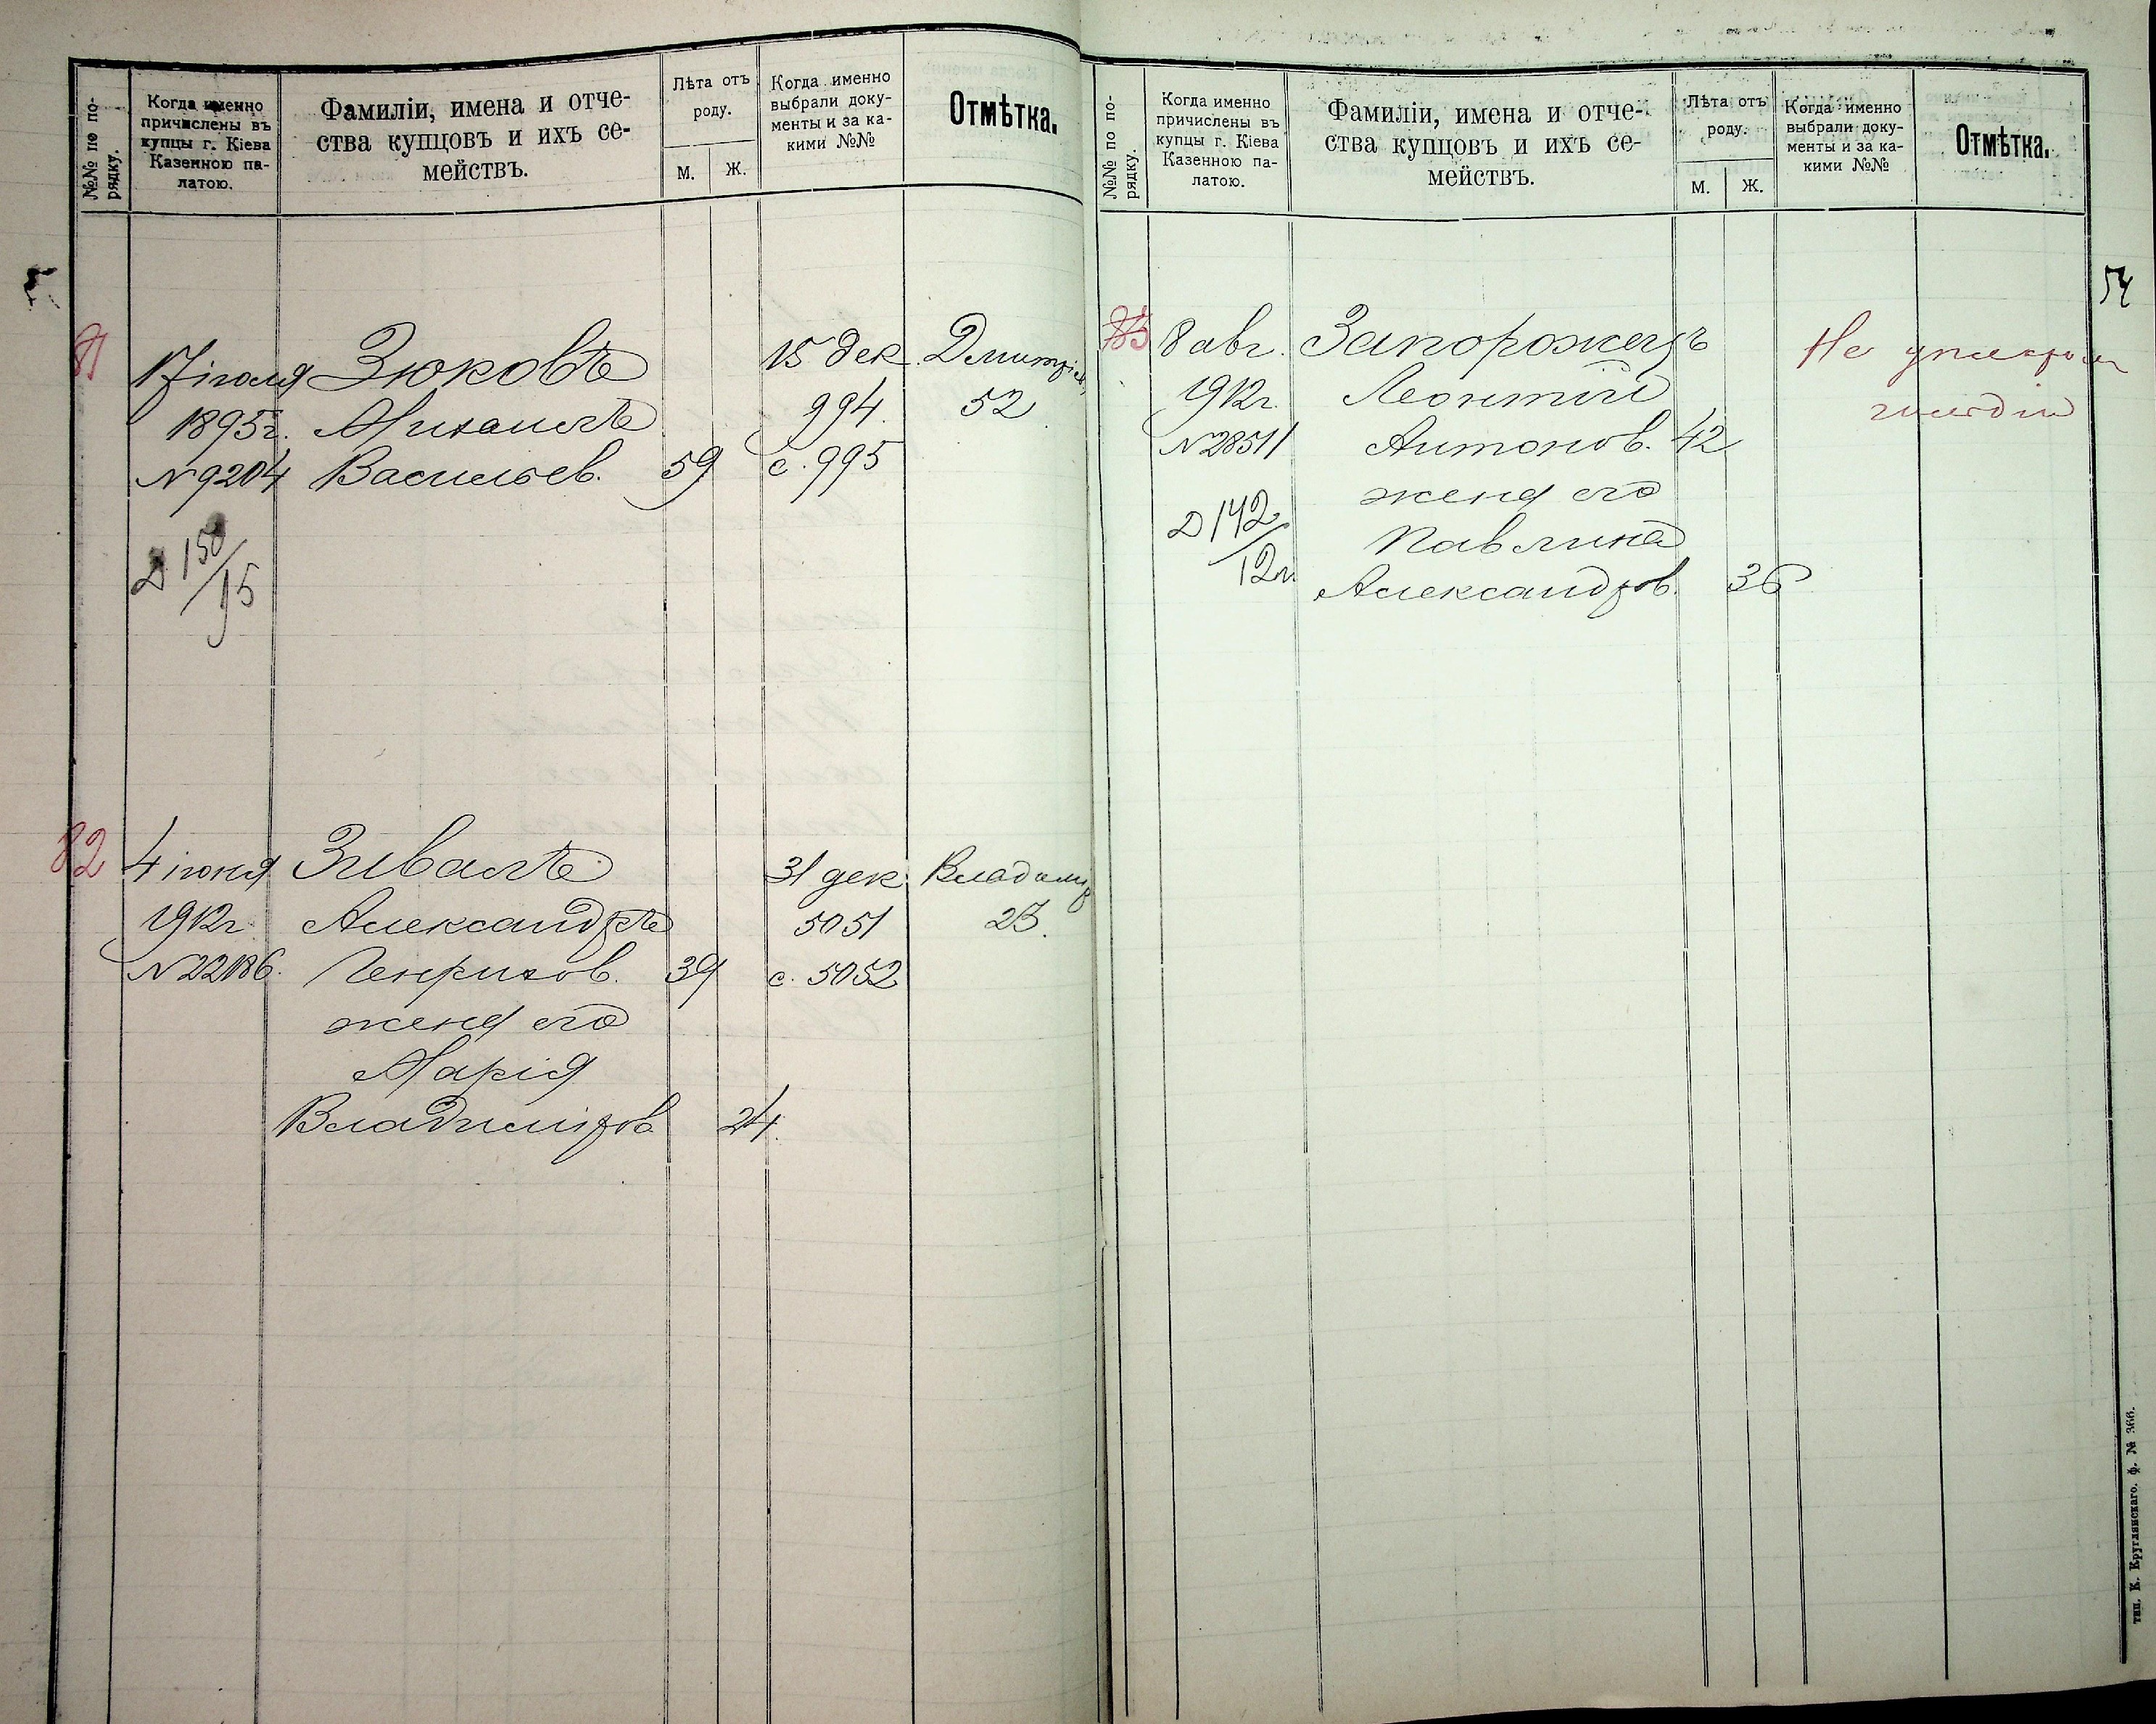 №№ по по-
рядку.
Когда именно
причислены въ
купцы г. Кіева
Казенною па-
латою.
Фамиліи, имена и отче-
ства купцовъ и ихъ се-
мействъ.
Лѣта отъ
роду.
М.
Ж.
Когда именно
выбрали доку-
менты и за ка-
кими №№
Отмѣтка.
81
17 іюля
1895г.
N 9204
Д 150/15
Зюковъ
Михаилъ
Васильев.
59
15 дек.
994.
с. 995
52
82
4 іюня
1912г.
N 22186.
Зивалъ
Александръ
Генрихов.
39
жена его
Марія
Владиміров.
24.
31 дек.
5051
с. 5052
Владимір
23.
№№ по по-
рядку.
Когда именно
причислены въ
купцы г. Кіева
Казенною па-
латою.
Фамиліи, имена и отче-
ства купцовъ и ихъ се-
мействъ.
Лѣта отъ
роду.
М.
Ж.
Когда именно
выбрали доку-
менты и за ка-
кими №№
Отмѣтка.
54
8 авг.
1912г.
N 28511
Д 142/12г.
Запорожецъ
Леонтій
Антонов. 42
жена его
Павлина
Александров. 36
Не
гильдіи
тип. К. Круглянскаго. ф. № 366.